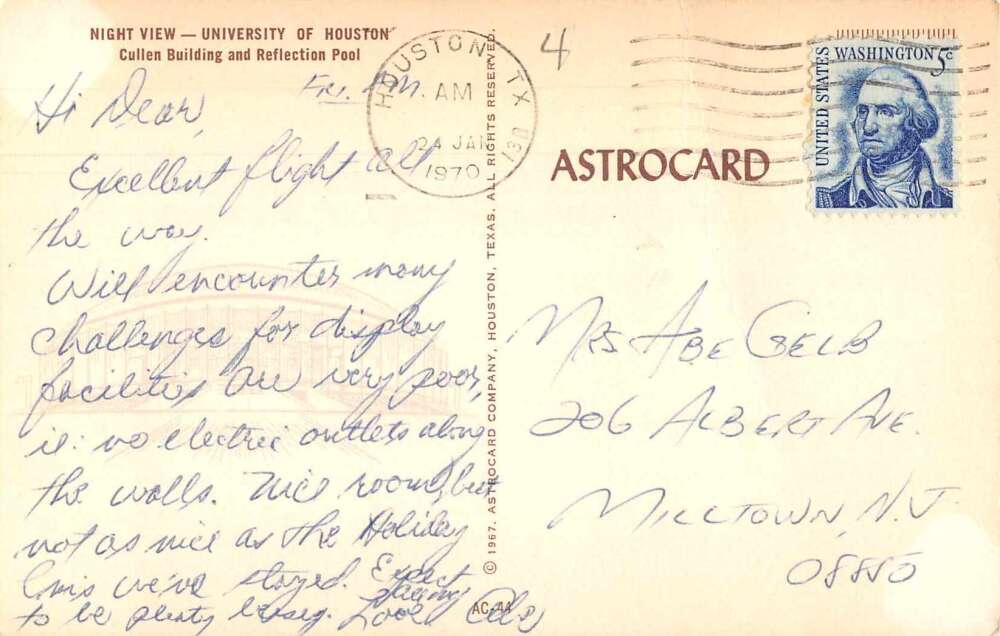 NIGHT VIEW — UNIVERSITY OF HOUSTON
Cullen Building and Reflection Pool
Fri. PM.
Hi Dear,
Excellent flight all
the way.
Will encounter many
challenges for display
facilities are very poor,
ie: no electric outlets along
the walls. Nice room, but
not as nice as the Holiday
Inns we've stayed. Expect
to be plenty busy.
Love Abe
© 1967. ASTROCARD COMPANY, HOUSTON, TEXAS. ALL RIGHTS RESERVED.
AC-44
HOUSTON, TX
AM
24 JAN
1970
130
4
ASTROCARD
UNITED STATES
WASHINGTON 5c
Mrs Abe Gelb
206 Albert Ave.
Milltown, N.J.
08850